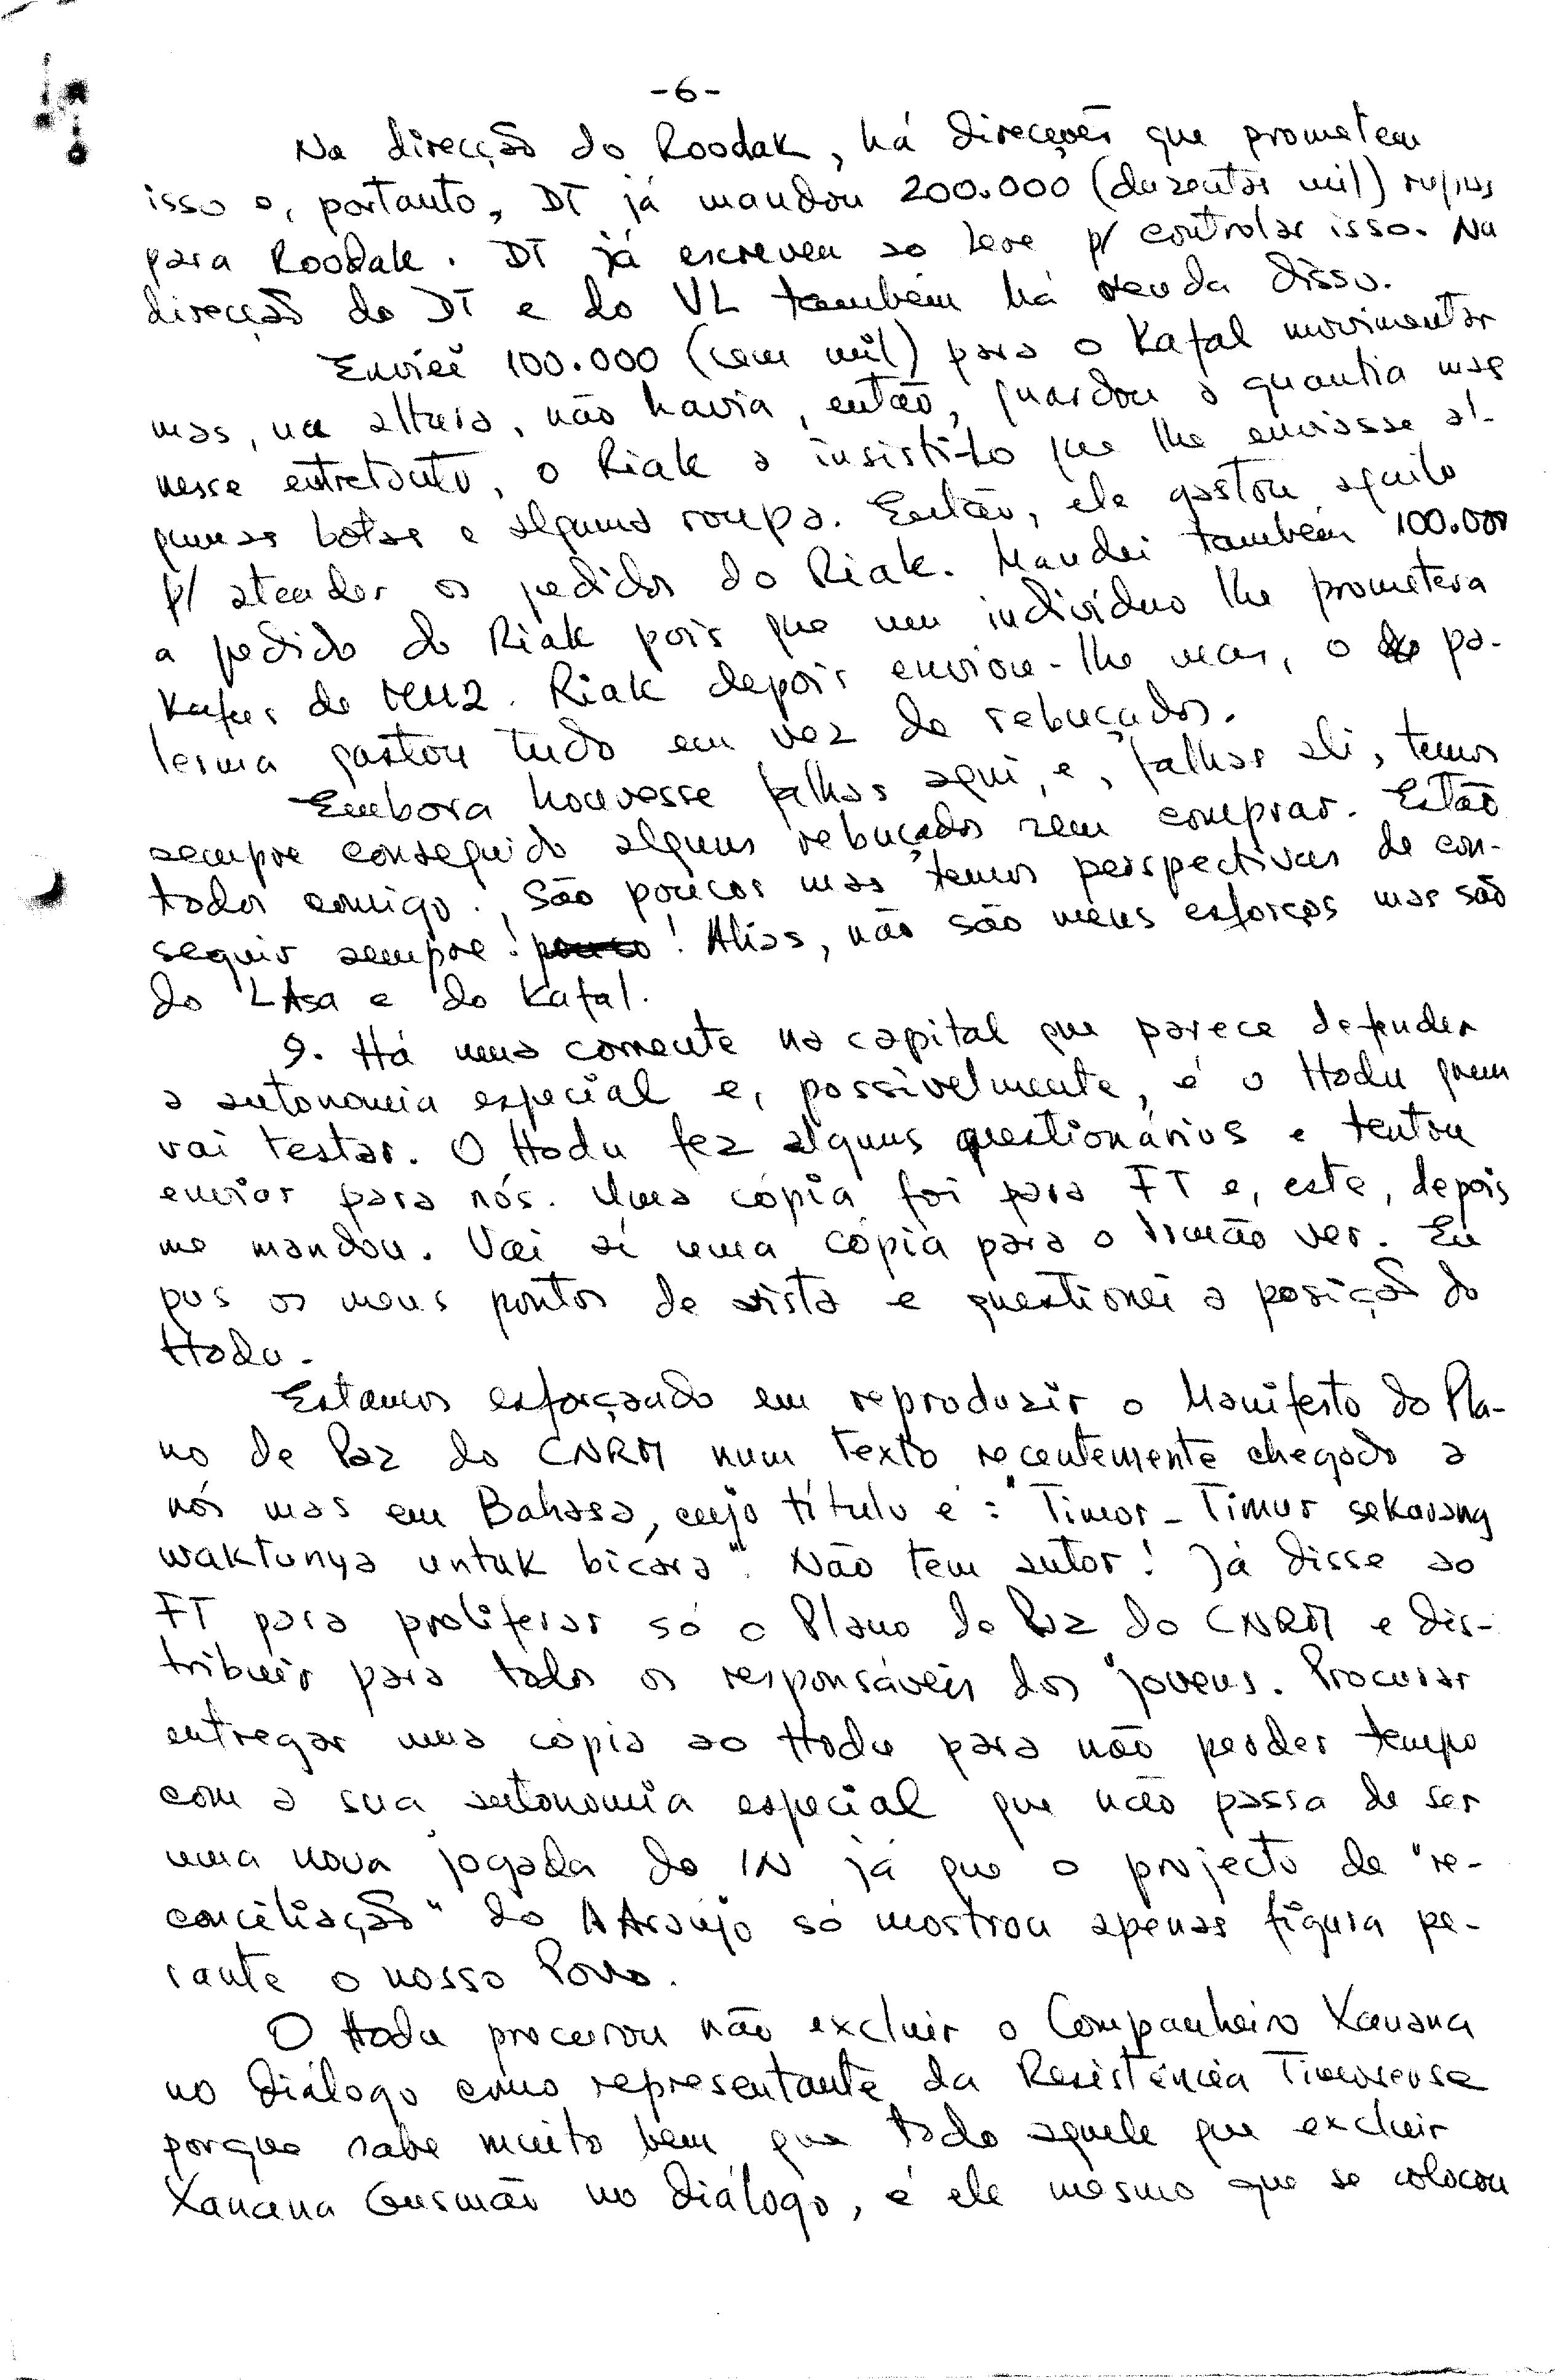 -6-
Na direcção do Roodak, há direcções que prometem
isso e, portanto, DT já mandou 200.000 (duzentas mil) rupias
para Roodak. DT já escreveu ao Lere p/ controlar isso. Na
direcção do DT e do VL também há venda disso.
Enviei 100.000 (cem mil) para o Kafal movimentar
mas, na altura, não havia, então, guardou a quantia mas
nesse entretanto, o Riak a insisti-lo que lhe enviasse al-
gumas botas e alguma roupa. Então, ele gastou aquilo
p/ atender os pedidos do Riak. Mandei também 100.000
a pedido do Riak pois que um indivíduo lhe prometera
de M12. Riak depois enviou-lhe mas, o pa-
lerma gastou tudo em vez de rebuçados.
Embora houvesse falhas aqui, e, falhas ali, temos
sempre conseguido alguns rebuçados sem comprar. Estão
todos comigo. São poucos mas temos perspectivas de con-
seguir sempre! pouco! Aliás, não são meus esforços mas são
do LAsa e do Kafal.
9. Há uma corrente na capital que parece defender
a autonomia especial e, possivelmente, é o Hodu quem
vai testar. O Hodu fez alguns questionários e tentou
enviar para nós. Uma cópia foi para FT e, este, depois
me mandou. Vai aí uma cópia para o Irmão ver. Eu
pus os meus pontos de vista e questionei a posição do
Hodu.
Estamos esforçando em reproduzir o Manifesto do Pla-
no de Paz do CNRM num texto recentemente chegado a
nós mas em Bahasa, cujo título é: "Timor-Timur sekarang
waktunya untuk bicara". Não tem autor! Já disse ao
FT para proliferar só o Plano de Paz do CNRM e dis-
tribuir para todos os responsáveis dos jovens. Procurar
entregar uma cópia ao Hodu para não perder tempo
com a sua autonomia especial que não passa de ser
uma nova jogada do IN já que o projecto de "re-
conciliação" do AAraújo só mostrou apenas figura pe-
rante o nosso Povo.
O Hodu procurou não excluir o Companheiro Xanana
no diálogo como representante da Resistência Timorense
porque sabe muito bem que todo aquele que excluir
Xanana Gusmão no diálogo, é ele mesmo que se colocou